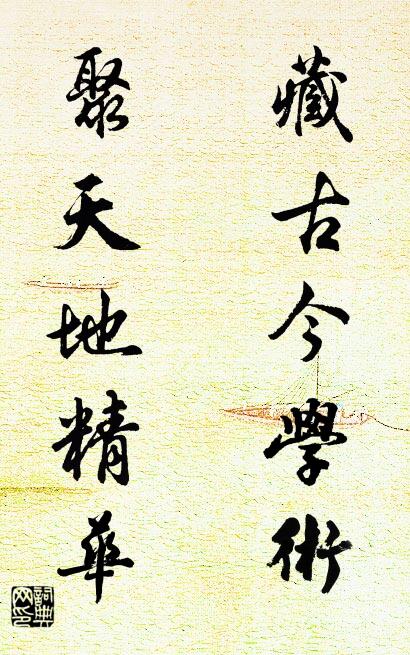 藏古今學術
聚天地精華
詞典网印